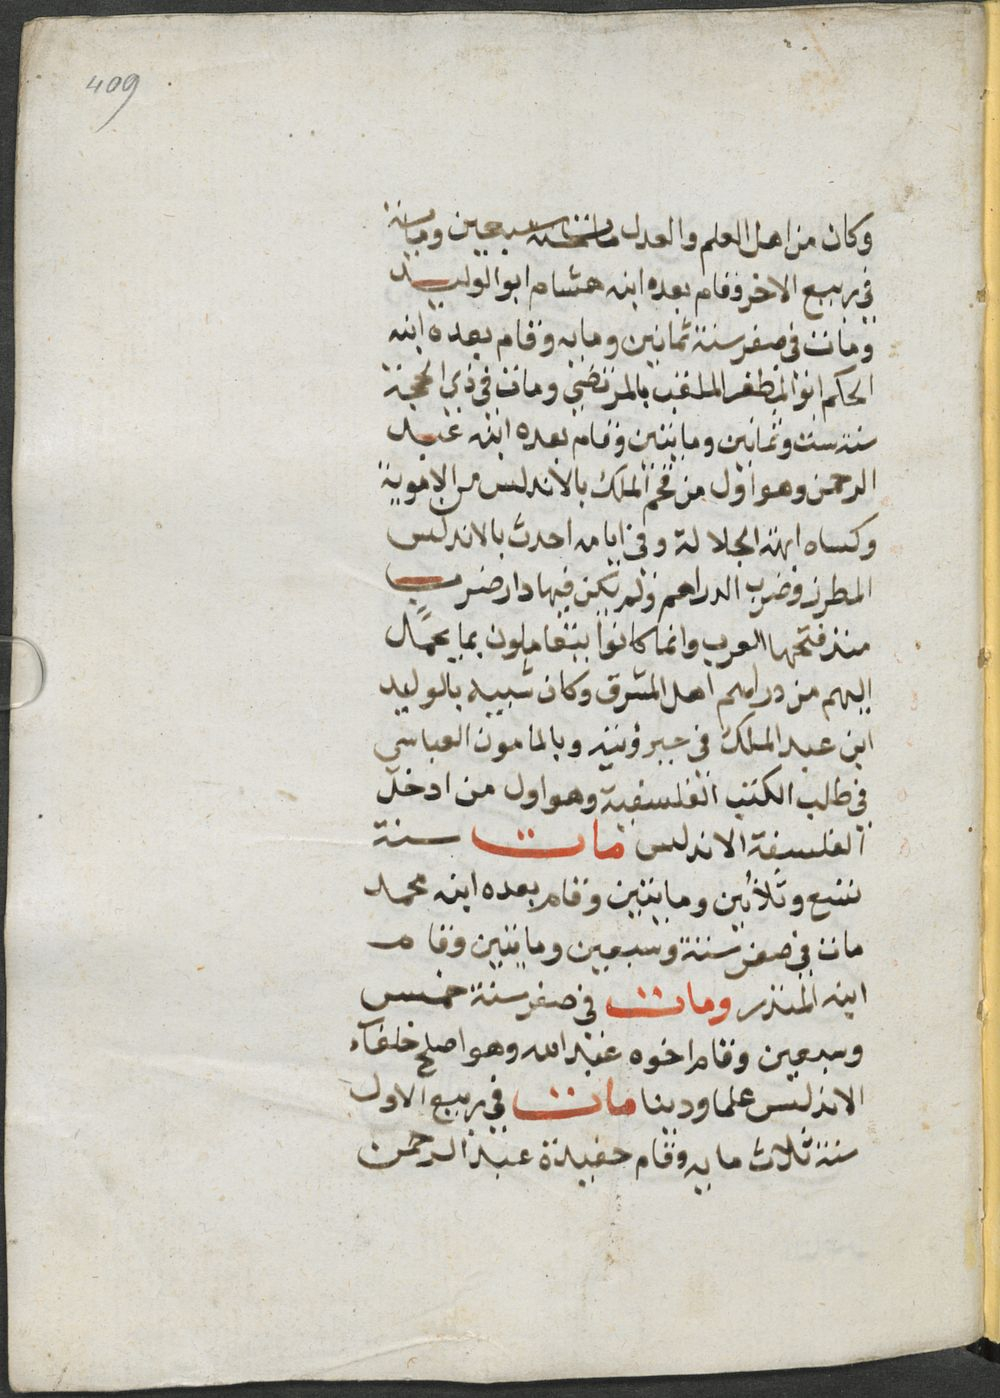 409
وكان من اهل العلم والعدل مات سنة سبعين وماية
في ربيع الاخر وقام بعده ابنه هشام ابو الوليد
ومات في صفر سنة ثمانين ومايه وقام بعده ابنه
الحكم ابو المظفر الملقب بالمرتضي ومات في ذي الحجة
سنة ست وثمانين ومايتين وقام بعده ابنه عبد
الرحمن وهو اول من فخم الملك بالاندلس من الاموية
وكساه ابهة الجلالة وفي ايامه احدث بالاندلس
المطرز وضرب الدراهم ولم تكن فيها دار ضرب
منذ فتحها العرب وانما كانوا يتعاملون بما يحمل
اليهم من دراهم اهل المشرق وكان شبيه بالوليد
ابن عبد الملك في جبروته وبالمامون العباسي
في طلب الكتب الفلسفية وهو اول من ادخل
الفلسفة الاندلس مات سنة
تسع وثلاثين ومايتين وقام بعده ابنه محمد
مات في صفر سنة وسبعين ومايتين وقام
ابنه المنذر ومات في صفر سنة خمس
وسبعين وقام اخوه عبد الله وهو اصلح خلفاء
الاندلس علما ودينا مات في ربيع الاول
سنة ثلاث مايه وقام حفيدة عبد الرحمن